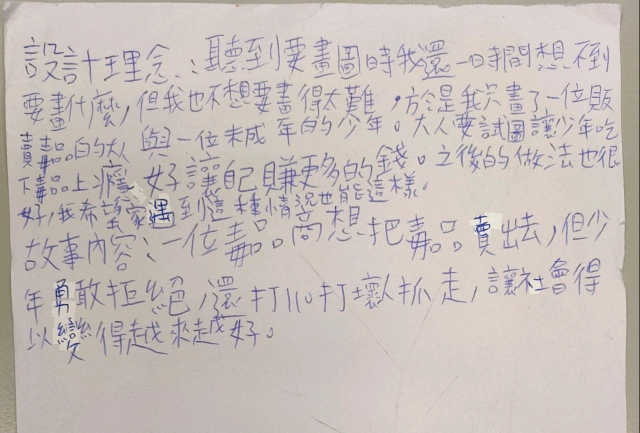 設計理念：聽到要畫圖時我還一時間想不到
要畫什麼，但我也不想要畫得太難，於是我只畫了一位販
賣毒品的大人與一位未成年的少年。大人要試圖讓少年吃
下毒品上癮，好讓自己賺更多的錢。之後的做法也很
好，我希望大家遇到這種情況也能這樣。
故事內容：一位毒品商想把毒品賣出去，但少
年勇敢拒絕，還打110打壞人抓走，讓社會得
以變得越來越好。